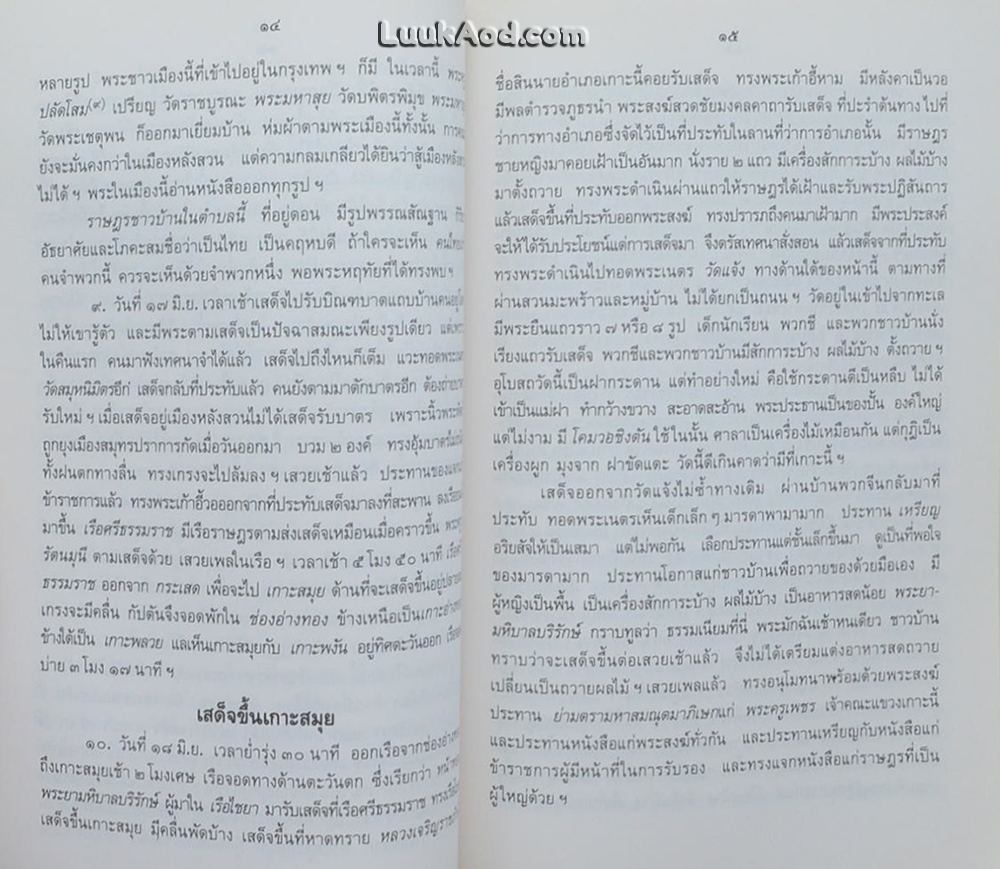 ๑๔
LuukAod.com
หลายรูป พระชาวเมืองนี้ที่เข้าไปอยู่ในกรุงเทพ ฯ ก็มี ในเวลานี้
ปลัดโสม(๙) เปรียญ วัดราชบูรณะ พระมหาสุย วัดบพิตรพิมุข
วัดพระเชตุพน ก็ออกมาเยี่ยมบ้าน ห่มผ้าตามพระเมืองนี้ทั้งนั้น
ยังจะมั่นคงกว่าในเมืองหลังสวน แต่ความกลมเกลียวได้ยินว่าสู้เมือง
ไม่ได้ ฯ พระในเมืองนี้อ่านหนังสือออกทุกรูป ฯ
ราษฎรชาวบ้านในตำบลนี้ ที่อยู่ดอน มีรูปพรรณสัณฐาน
อัธยาศัยและโภคะสมชื่อว่าเป็นไทย เป็นคฤหบดี ถ้าใครจะเห็น
คนจำพวกนี้ ควรจะเห็นด้วยจำพวกหนึ่ง พอพระหฤทัยที่ได้ทรงพบ ฯ
๙. วันที่ ๑๗ มิ.ย. เวลาเช้าเสด็จไปรับบิณฑบาตแถบบ้าน
ไม่ให้เขารู้ตัว และมีพระตามเสด็จเป็นปัจฉาสมณะเพียงรูปเดียว
ในคืนแรก คนมาฟังเทศนาจำได้แล้ว เสด็จไปถึงไหนก็เต็ม แวะทอด
วัดสมุหนิมิตรอีก เสด็จกลับที่ประทับแล้ว คนยังตามมาตักบาตรอีก
รับใหม่ ฯ เมื่อเสด็จอยู่เมืองหลังสวนไม่ได้เสด็จรับบาตร เพราะนิ้ว
ถูกยุงเมืองสมุทรปราการกัดเมื่อวันออกมา บวม ๒ องค์ ทรงอุ้มบาตร
ทั้งฝนตกทางลื่น ทรงเกรงจะไปล้มลง ฯ เสวยเช้าแล้ว ประทานของ
ข้าราชการแล้ว ทรงพระเก้าอี้วอออกจากที่ประทับเสด็จมาลงที่สะพาน
มาขึ้น เรือศรีธรรมราช มีเรือราษฎรตามส่งเสด็จเหมือนเมื่อคราวขึ้น
รัตนมุนี ตามเสด็จด้วย เสวยเพลในเรือ ฯ เวลาเช้า ๕ โมง ๕๐ นาที
ธรรมราช ออกจาก กระเสด เพื่อจะไป เกาะสมุย ด้านที่จะเสด็จขึ้นอยู่
เกรงจะมีคลื่น กัปตันจึงจอดพักใน ช่องอ่างทอง ข้างเหนือเป็น
ข้างใต้เป็น เกาะพลวย แลเห็นเกาะสมุยกับ เกาะพงัน อยู่ทิศตะวันออก
บ่าย ๓ โมง ๑๗ นาที ฯ
เสด็จขึ้นเกาะสมุย
๑๐. วันที่ ๑๘ มิ.ย. เวลาย่ำรุ่ง ๓๐ นาที ออกเรือจากช่อง
ถึงเกาะสมุยเช้า ๒ โมงเศษ เรือจอดทางด้านตะวันตก ซึ่งเรียกว่า
พระยามหิบาลบริรักษ์ ผู้มาใน เรือไชยา มารับเสด็จที่เรือศรีธรรมราช
เสด็จขึ้นเกาะสมุย มีคลื่นพัดบ้าง เสด็จขึ้นที่หาดทราย
๑๕
ชื่อสินนายอำเภอเกาะนี้คอยรับเสด็จ ทรงพระเก้าอี้หาม มีหลังคาเป็นวอ
มีพลตำรวจภูธรนำ พระสงฆ์สวดชัยมงคลคาถารับเสด็จ ที่ปะรำต้นทาง ไปที่
ว่าการทางอำเภอซึ่งจัดไว้เป็นที่ประทับในลานที่ว่าการอำเภอนั้น มีราษฎร
ชายหญิงมาคอยเฝ้าเป็นอันมาก นั่งราย ๒ แถว มีเครื่องสักการะบ้าง ผลไม้บ้าง
มาตั้งถวาย ทรงพระดำเนินผ่านแถวให้ราษฎรได้เฝ้าและรับพระปฏิสันถาร
แล้วเสด็จขึ้นที่ประทับออกพระสงฆ์ ทรงปรารภถึงคนมาเฝ้ามาก มีพระประสงค์
จะให้ได้รับประโยชน์แต่การเสด็จมา จึงตรัสเทศนาสั่งสอน แล้วเสด็จจากที่ประทับ
ทรงพระดำเนินไปทอดพระเนตร วัดแจ้ง ทางด้านใต้ของหน้านี้ ตามทางที่
ผ่านสวนมะพร้าวและหมู่บ้าน ไม่ได้ยกเป็นถนน ฯ วัดอยู่ในเข้าไปจากทะเล
มีพระยืนแถวราว ๗ หรือ ๘ รูป เด็กนักเรียน พวกชี และพวกชาวบ้านนั่ง
เรียงแถวรับเสด็จ พวกชีและพวกชาวบ้านมีสักการะบ้าง ผลไม้บ้าง ตั้งถวาย ฯ
อุโบสถวัดนี้เป็นฝากระดาน แต่ทำอย่างใหม่ คือใช้กระดานตีเป็นหลืบ ไม่ได้
เข้าเป็นแม่ฝา ทำกว้างขวาง สะอาดสะอ้าน พระประธานเป็นของปั้น องค์ใหญ่
แต่ไม่งาม มี โคมวอชิงตัน ใช้ในนั้น ศาลาเป็นเครื่องไม้เหมือนกัน แต่กุฎิเป็น
เครื่องผูก มุงจาก ฝาขัดแตะ วัดนี้ดีเกินคาดว่ามีที่เกาะนี้ ฯ
เสด็จออกจากวัดแจ้งไม่ซ้ำทางเดิม ผ่านบ้านพวกจีนกลับมาที่
ประทับ ทอดพระเนตรเห็นเด็กเล็ก ๆ มารดาพามามาก ประทาน เหรียญ
อริยสัจให้เป็นเสมา แต่ไม่พอกัน เลือกประทานแต่ชั้นเล็กขึ้นมา ดูเป็นที่พอใจ
ของมารดามาก ประทานโอกาสแก่ชาวบ้านเพื่อถวายของด้วยมือเอง มี
ผู้หญิงเป็นพื้น เป็นเครื่องสักการะบ้าง ผลไม้บ้าง เป็นอาหารสดน้อย พระยา-
มหิบาลบริรักษ์ กราบทูลว่า ธรรมเนียมที่นี่ พระมักฉันเช้าหนเดียว ชาวบ้าน
ทราบว่าจะเสด็จขึ้นต่อเสวยเช้าแล้ว จึงไม่ได้เตรียมแต่งอาหารสดถวาย
เปลี่ยนเป็นถวายผลไม้ ฯ เสวยเพลแล้ว ทรงอนุโมทนาพร้อมด้วยพระสงฆ์
ประทาน ย่ามตรามหาสมณุตมาภิเษกแก่ พระครูเพชร เจ้าคณะแขวงเกาะนี้
และประทานหนังสือแก่พระสงฆ์ทั่วกัน และประทานเหรียญกับหนังสือแก่
ข้าราชการผู้มีหน้าที่ในการรับรอง และทรงแจกหนังสือแก่ราษฎรที่เป็น
ผู้ใหญ่ด้วย ฯ